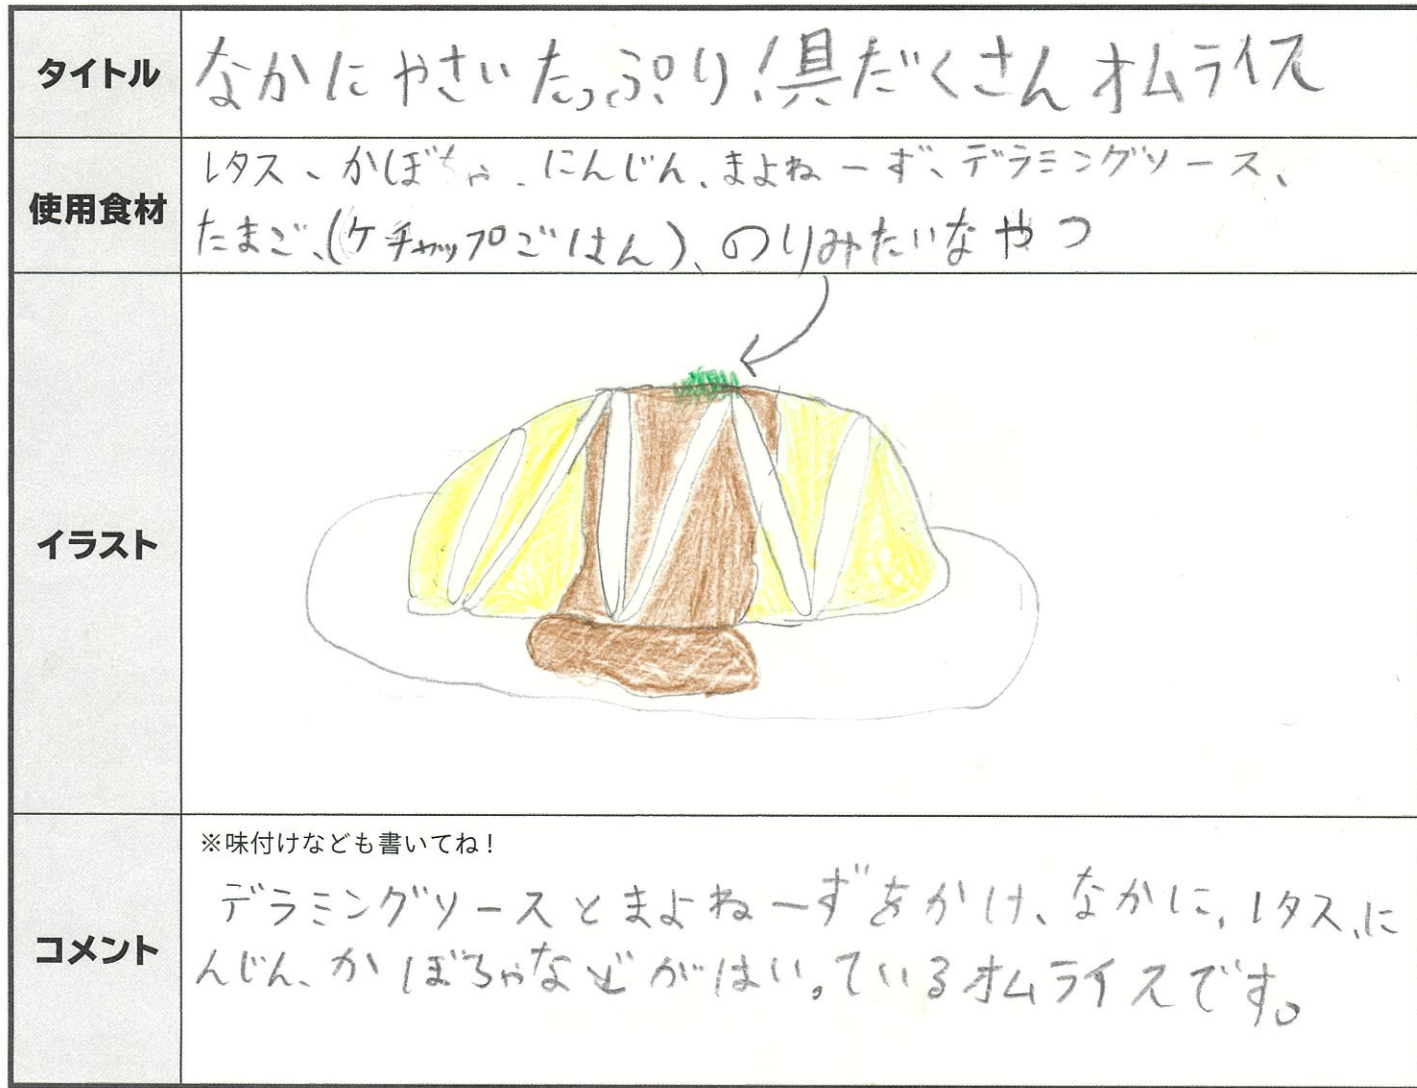 タイトル
なかにやさいたっぷり!具だくさんオムライス
使用食材
レタス、かぼちゃ、にんじん、まよねーず、デラミングソース、
たまご、(ケチャップごはん)、のりみたいなやつ
イラスト
コメント
※味付けなども書いてね!
デラミングソースとまよねーずをかけ、なかに、レタス、に
んじん、かぼちゃなどがはいっているオムライスです。